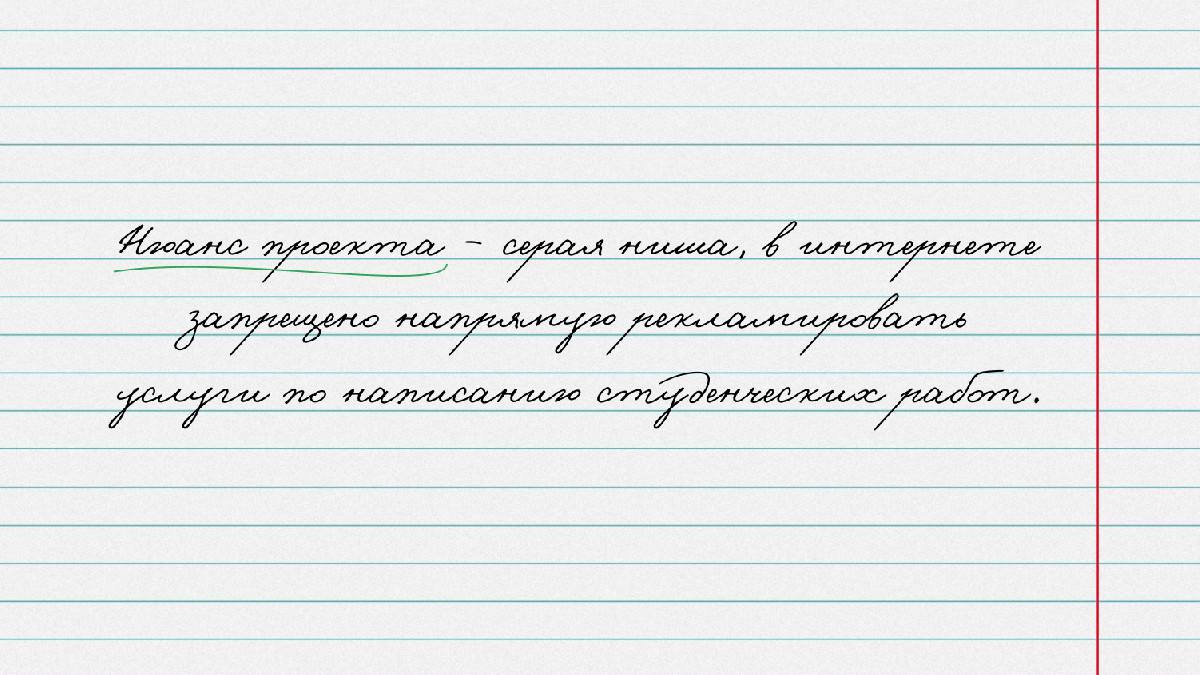 Нюанс проекта - серая ниша, в интернете
запрещено напрямую рекламировать
услуги по написанию студенческих работ.